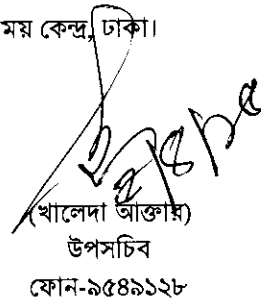 ময় কেন্দ্র, ঢাকা।
(খালেদা আক্তার)
উপসচিব
ফোন-৯৫৪৯১২৮